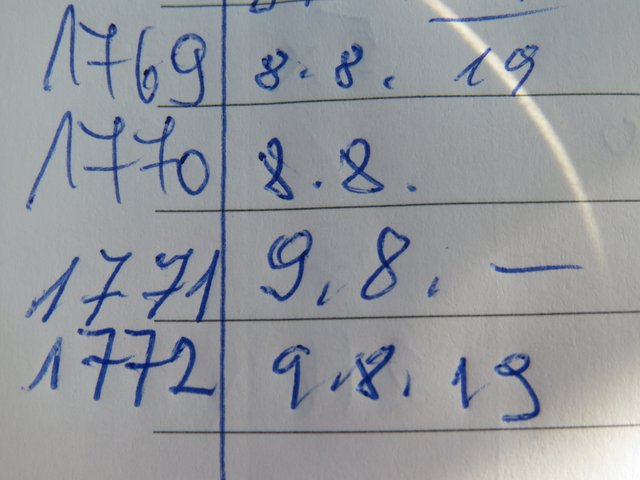 1769 8.8. 19
1770 8.8.
1771 9.8. —
1772 9.8. 19